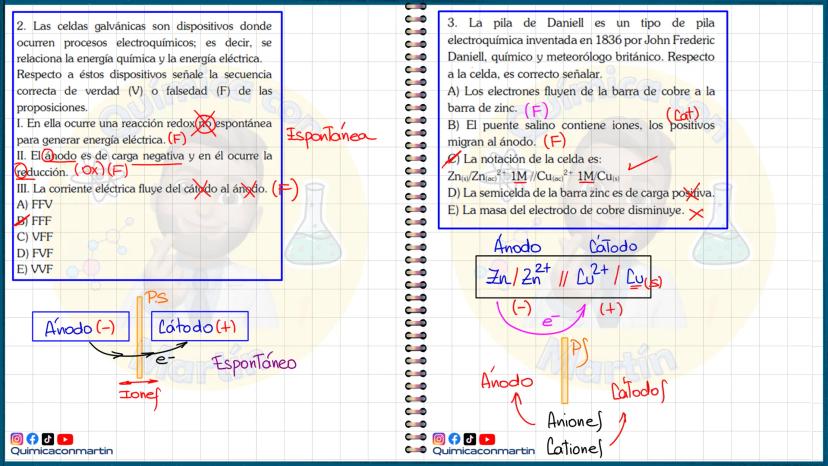 2. Las celdas galvánicas son dispositivos donde
ocurren procesos electroquímicos; es decir, se
relaciona la energía química y la energía eléctrica.
Respecto a éstos dispositivos señale la secuencia
correcta de verdad (V) o falsedad (F) de las
proposiciones.
I. En ella ocurre una reacción redox no espontánea
para generar energía eléctrica. (F)
Espontánea
II. El ánodo es de carga negativa y en él ocurre la
reducción. (Ox) (F)
III. La corriente eléctrica fluye del cátodo al ánodo. (F)
A) FFV
B) FFF
C) VFF
D) FVF
E) VVF
PS
Ánodo (-)
Cátodo (+)
e-
Espontáneo
Iones
Quimicaconmartin
3. La pila de Daniell es un tipo de pila
electroquímica inventada en 1836 por John Frederic
Daniell, químico y meteorólogo británico. Respecto
a la celda, es correcto señalar.
A) Los electrones fluyen de la barra de cobre a la
barra de zinc. (F)
(Cat)
B) El puente salino contiene iones, los positivos
migran al ánodo. (F)
C) La notación de la celda es:
Zn(s)/Zn(ac)2+ 1M //Cu(ac)2+ 1M/Cu(s)
D) La semicelda de la barra zinc es de carga positiva.
E) La masa del electrodo de cobre disminuye.
Ánodo Cátodo
Zn / Zn2+ // Cu2+ / Cu(s)
(-) e- (+)
PS
Ánodo
Cátodos
Aniones
Cationes
Quimicaconmartin
Química con
Martín
Química con
Martín